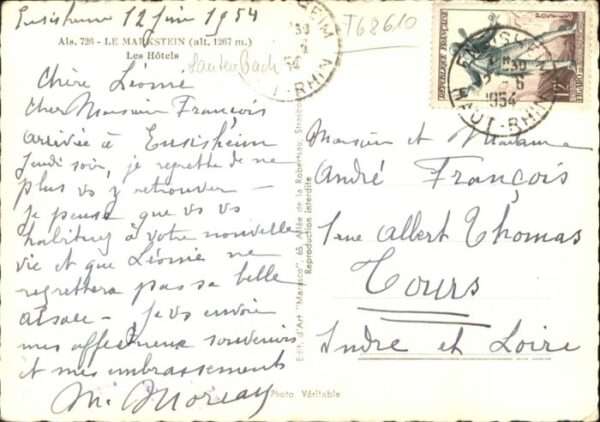 Ensisheim 12 Juin 1954
Als. 726 - LE MARKSTEIN (alt. 1267 m.)
Les Hôtels
Lautenbach
T68610
Chère Léonie
Cher Monsieur François
arrivée à Ensisheim
Jeudi soir, je regrette de ne
plus vs y retrouver —
je pense que vs vs
habituez à votre nouvelle
vie et que Léonie ne
regrettera pas sa belle
alsace — je vs envoie
mes affectueux souvenirs
et mes embrassements
M. Moreau
Edit. d'Art "Maresco", 65, Allée de la Robertsau,
Reproduction interdite
Photo Véritable
RÉPUBLIQUE FRANÇAISE
ENSISHEIM
1954
HAUT-RHIN
Monsieur et Madame
André François
1 rue Albert Thomas
Tours
Indre et Loire